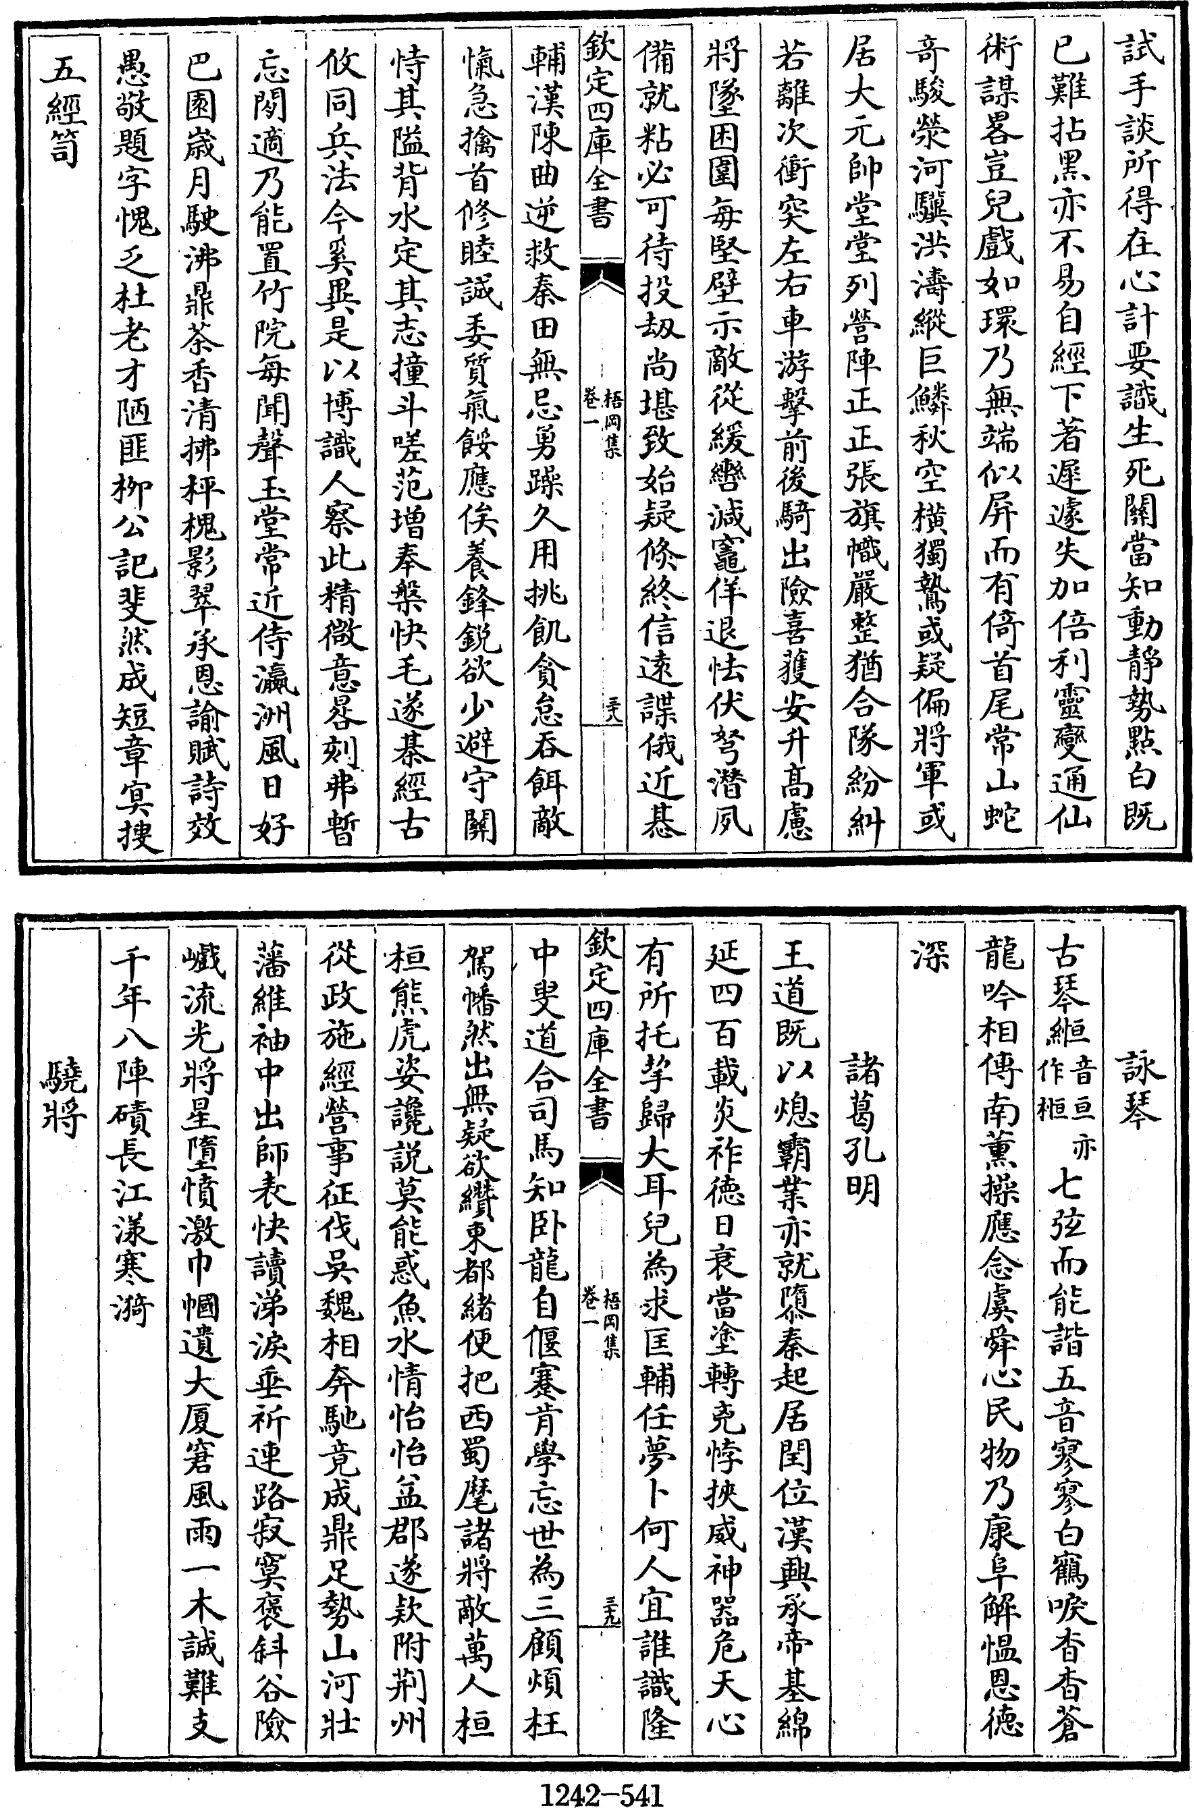 試手談所得在心計要識生死關當知動靜勢點白既
已難拈黑亦不易自經下著遲遽失加倍利靈變通仙
術謀畧豈兒戲如環乃無端似屏而有倚首尾常山蛇
竒駿滎河驥洪濤縱巨鱗秋空橫獨鷙或疑偏將軍或
居大元帥堂堂列營陣正正張旗幟嚴整猶合隊紛糾
若離次衝突左右車游擊前後騎出險喜獲安升髙慮
將墜困圍每堅壁示敵從緩轡減竈佯退怯伏弩潛夙
備就粘必可待投刼尚堪致始疑倏終信遠諜俄近惎
欽定四庫全書
梧岡集
卷一
三十八
輔漢陳曲逆救秦田無忌勇躁久用挑飢貪怠吞餌敵
愾急擒首修睦誠委質氣餒應俟養鋒銳欲少避守關
恃其隘背水定其志撞斗嗟范增奉槃快毛遂棊經古
攸同兵法今奚異是以博識人察此精微意晷刻弗暫
忘閒適乃能置竹院每聞聲玉堂常近侍瀛洲風日好
巴園嵗月駛沸鼎茶香清拂枰槐影翠承恩諭賦詩效
愚敬題字愧乏杜老才陋匪栁公記斐然成短章㝠搜
五經笥
詠琴
古琴縆音亘亦作㮓七弦而能諧五音寥寥白鶴唳杳杳蒼
龍吟相傳南薰操應念虞舜心民物乃康阜解愠恩德
深
諸葛孔明
王道既以熄霸業亦就隳秦起居閏位漢興承帝基綿
延四百載炎祚德日衰當塗轉克悖挾威神器危天心
有所托挈歸大耳兒為求匡輔任夢卜何人宜誰識隆
欽定四庫全書
梧岡集
卷一
三十九
中叟道合司馬知卧龍自偃蹇肯學忘世為三顧煩枉
駕幡然出無疑欲纘東都緒便把西蜀麾諸將敵萬人桓
桓熊虎姿讒説莫能惑魚水情怡怡益郡遂欵附荆州
從政施經營事征伐吳魏相奔馳竟成鼎足勢山河壯
藩維袖中出師表快讀涕淚垂祈連路寂寞褒斜谷險
巇流光將星墮憤激巾幗遺大厦窘風雨一木誠難支
千年八陣磧長江漾寒漪
驍將
1242-541